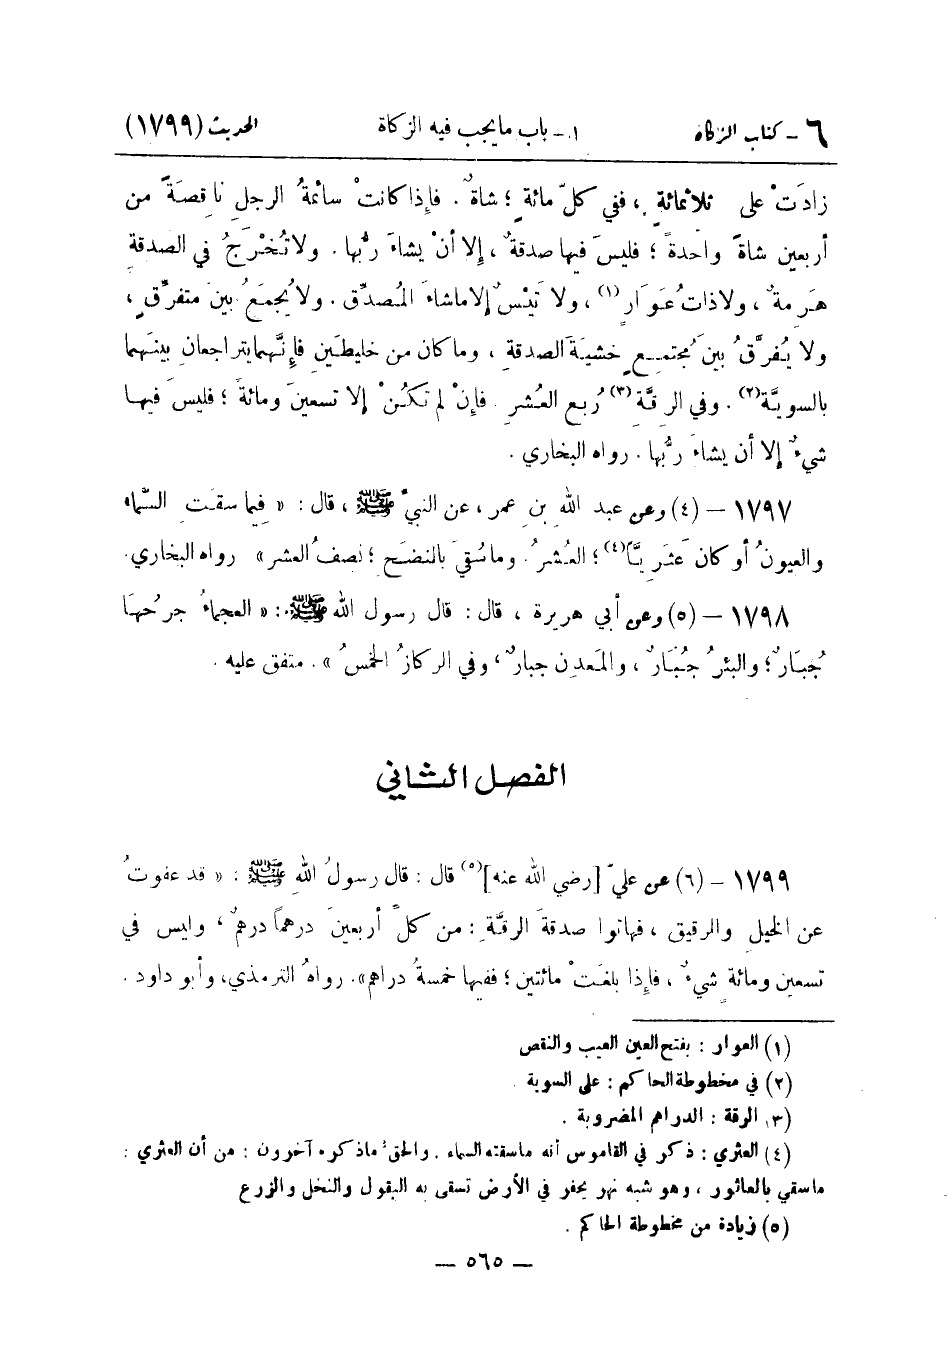 ٦ - كتاب الزكاة ١ - باب ما يجب فيه الزكاة الحديث (١٧٩٩)
زادَتْ على ثلاثمائةٍ ، ففي كلّ مائةٍ ؛ شاةٌ . فإذا كانتْ سائمةُ الرجلِ ناقصةً من
أربعين شاةً واحدةً ؛ فليسَ فيها صدقةٌ ، إلا أنْ يشاءَ ربُّها . ولا تُخْرَجُ في الصدقةِ
هَرِمةٌ ، ولا ذاتُ عَوَارٍ (١) ، ولا تَيْسٌ إلا ما شاءَ المُصدِّق . ولا يُجمَعُ بين متفرِّقٍ ،
ولا يُفرَّقُ بين مُجتمِعٍ خشيَةَ الصدقةِ ، وما كان من خليطَينِ فإنَّهما يتراجعان بينَهما
بالسويَّة(٢) . وفي الرِقَّةِ (٣) رُبع العُشرِ . فإنْ لم تكُنْ إلا تسعينَ ومائةً ؛ فليسَ فيها
شيءٌ إلا أن يشاءَ ربُّها . رواه البخاري .
١٧٩٧ - (٤) وعن عبد الله بن عمر ، عن النبيّ ﷺ ، قال : « فيما سقَت السَّماء
والعيونُ أو كان عَثَريّاً(٤) ؛ العُشرُ . وما سُقيَ بالنضحِ ؛ نصفُ العشر » رواه البخاري .
١٧٩٨ - (٥) وعن أبي هريرة ، قال : قال رسول الله ﷺ : « العجماءُ جرحُها
جُبَارٌ ؛ والبئرُ جُبَارٌ ، والمَعدِن جبارٌ ، وفي الركازُ الخمسُ » . متفق عليه .
الفصل الثاني
١٧٩٩ - (٦) عن عليّ [رضي الله عنه](٥) قال : قال رسولُ اللهِ ﷺ : « قد عفوتُ
عن الخيلِ والرقيقِ ، فهاتوا صدقةَ الرقَّةِ : من كلِّ أربعينَ درهماً درهمٌ ، وليس في
تسعين ومائةٍ شيءٌ ، فإذا بلغتْ مائتين ؛ ففيها خمسةُ دراهم» . رواهُ الترمذي، وأبو داود .
(١) العوار : بفتح العين العيب والنقص
(٢) في مخطوطة الحاكم : على السوية .
(٣) الرقة : الدراهم المضروبة .
(٤) العثري : ذكر في القاموس أنه ماسقته السماء . والحق ماذكره آخرون : من أن العثري :
ماسقي بالعاثور ، وهو شبه نهر يحفر في الأرض تسقى به البقول والنخل والزرع
(٥) زيادة من مخطوطة الحاكم .
— ٥٦٥ —